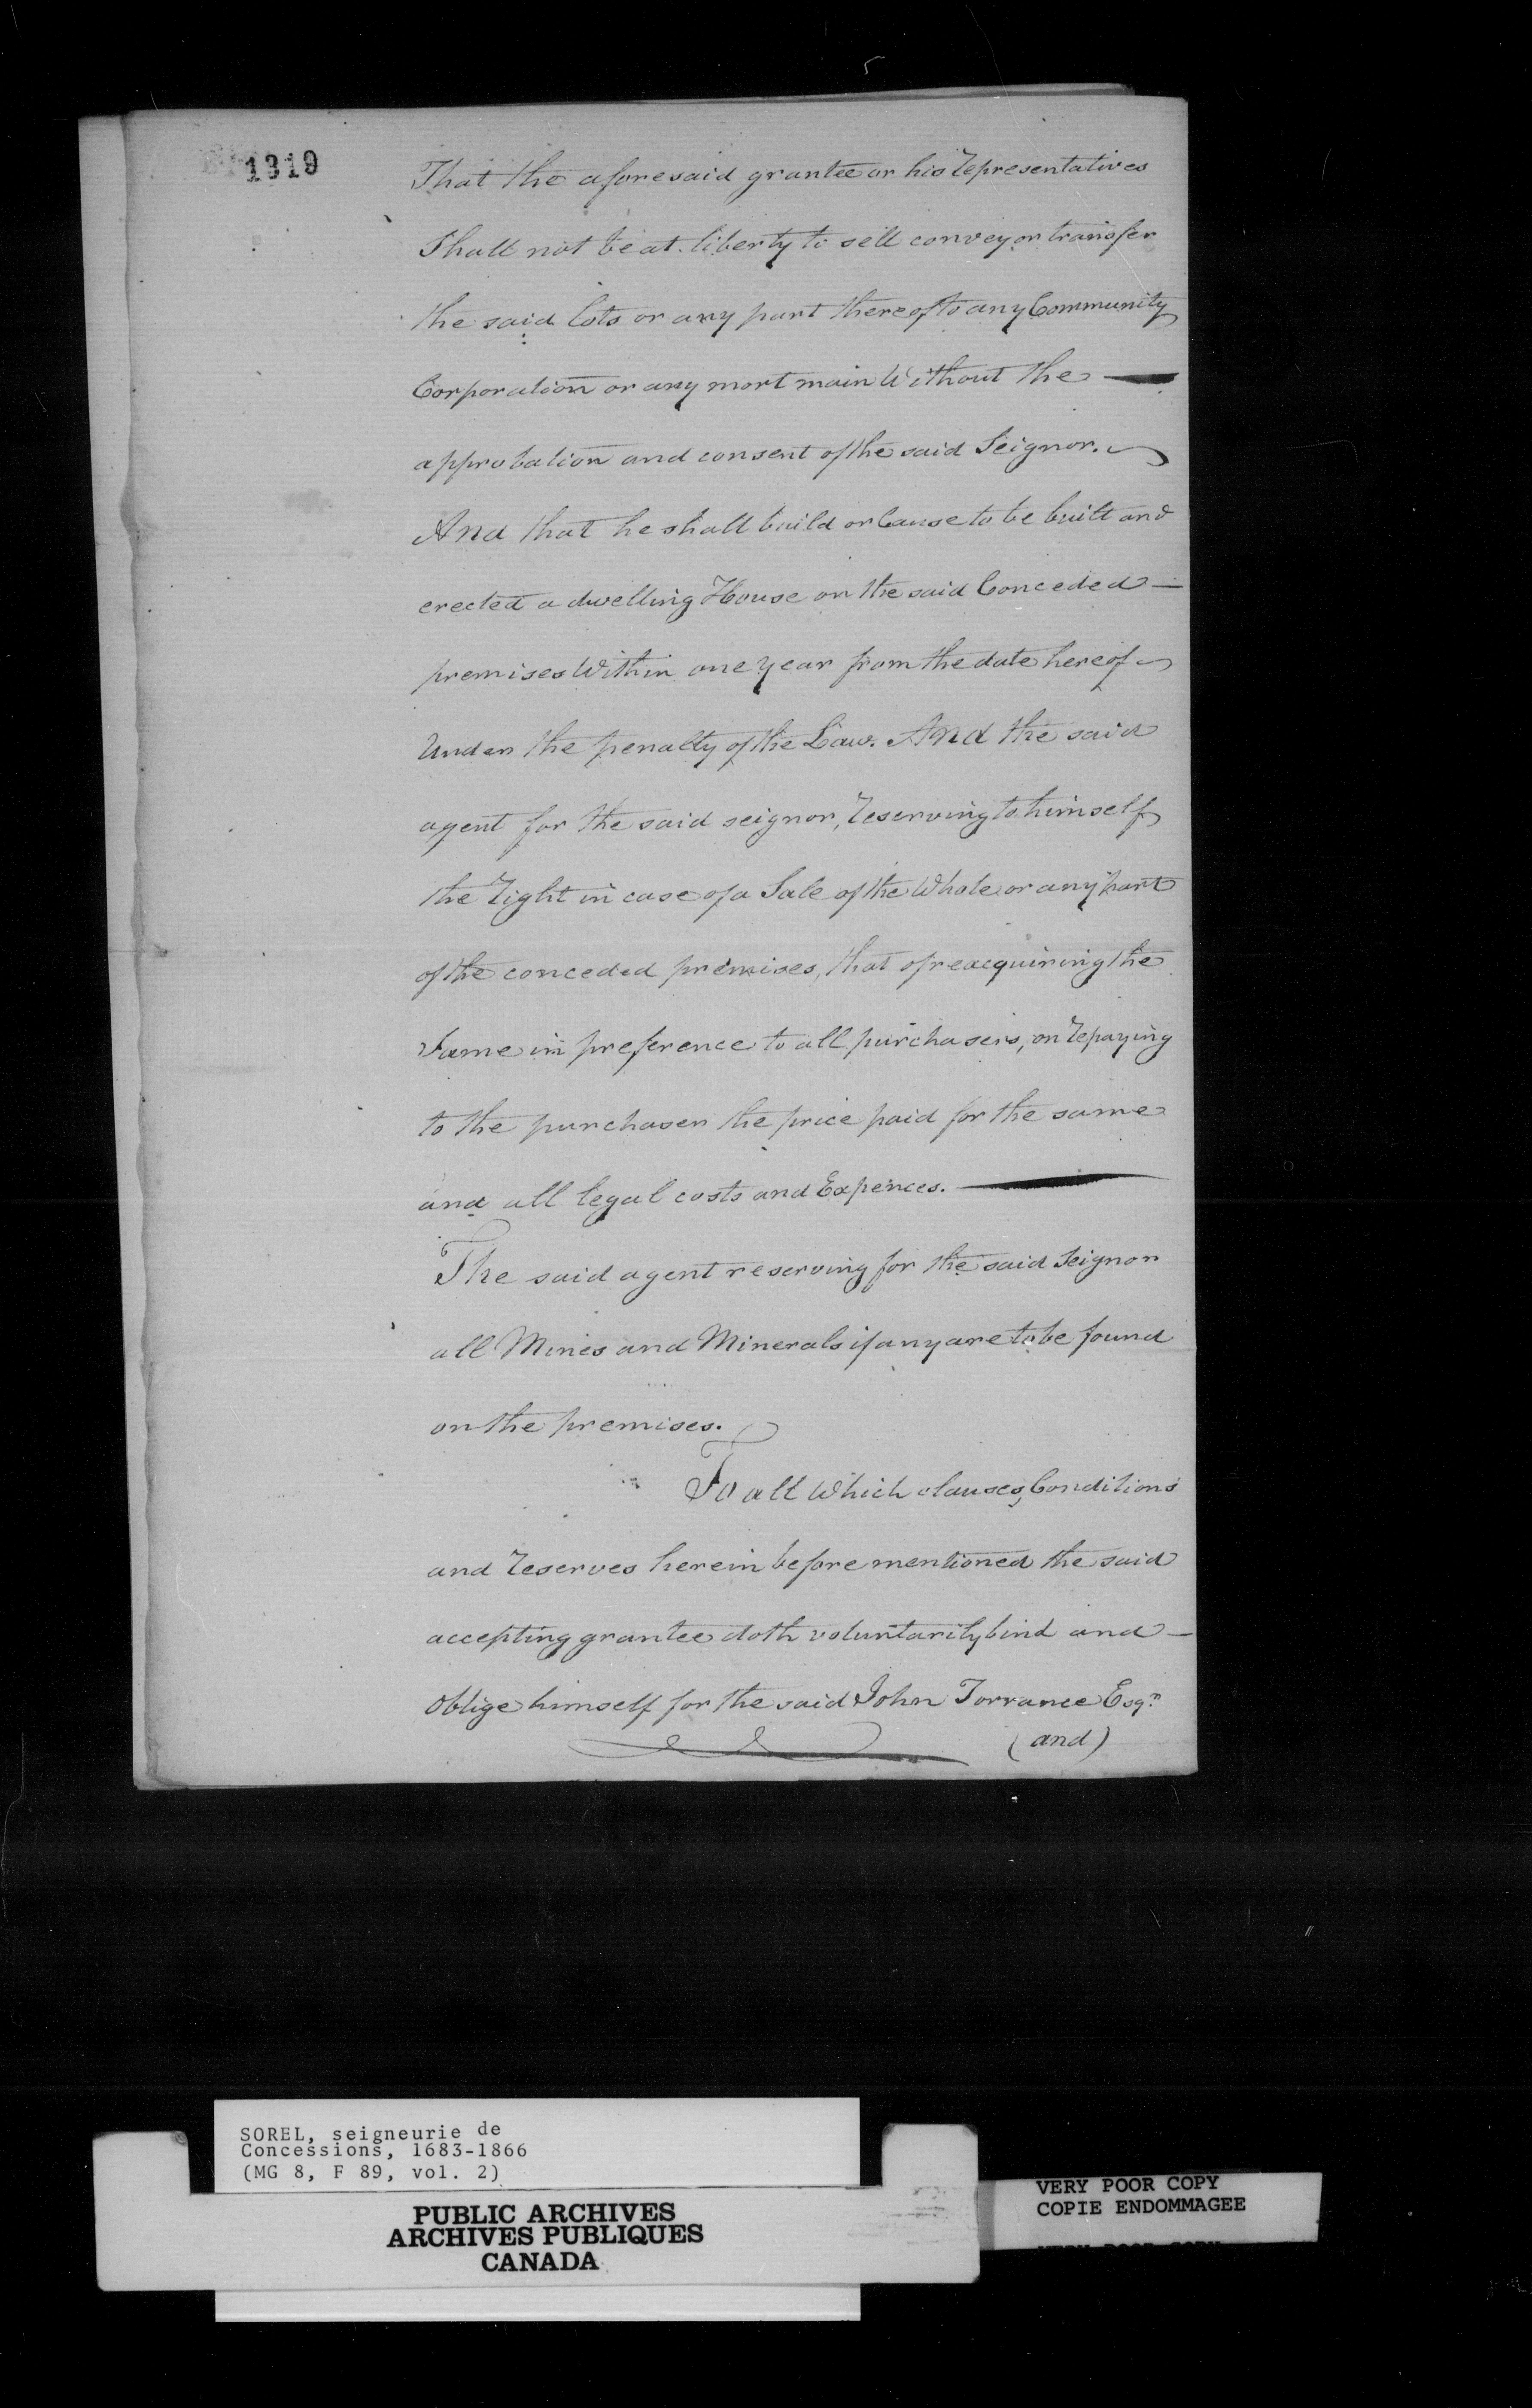 1319
That the aforesaid grantee or his representatives
Shall not be at liberty to sell convey or transfer
the said lots or any part thereof to any Community
Corporation or any mort main Without the —
approbation and consent of the said Seignor.
And that he shall build or Cause to be built and
erected a dwelling House on the said Conceded —
premises Within one year from the date hereof
Under the penalty of the Law. And the said
agent for the said seignor, reserving to himself
the right in case of a Sale of the Whole or any part
of the conceded premises, that of reacquiring the
Same in preference to all purchasers, on repaying
to the purchaser the price paid for the same
and all legal costs and Expences. —
The said agent reserving for the said Seignor
all Mines and Minerals if any are to be found
on the premises.
To all Which clauses, Conditions
and reserves herein before mentioned the said
accepting grantee doth voluntarily bind and —
Oblige himself for the said John Torrance Esqr.
(and)
SOREL, seigneurie de
Concessions, 1683-1866
(MG 8, F 89, vol. 2)
PUBLIC ARCHIVES
ARCHIVES PUBLIQUES
CANADA
VERY POOR COPY
COPIE ENDOMMAGEE
VERY POOR COPY